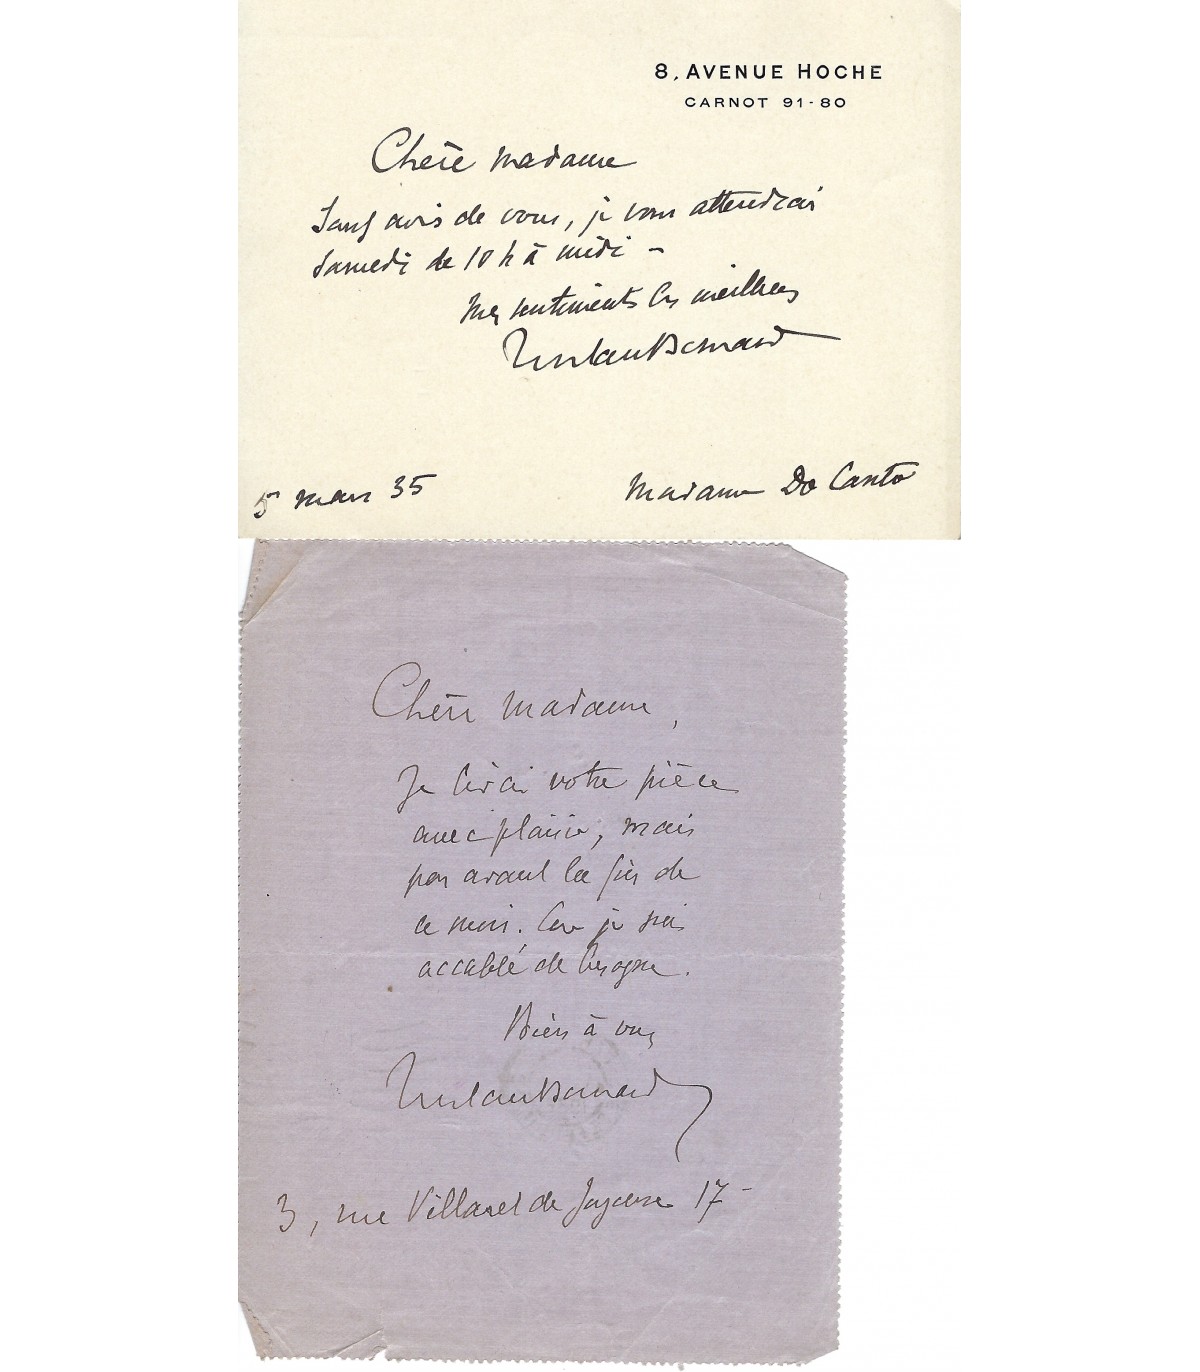 8, AVENUE HOCHE
CARNOT 91-80
Chère Madame
Sauf avis de vous, je vous attendrai
Samedi de 10 h à midi –
Mes sentiments les meilleurs
Tristan Bernard
5 mars 35
Madame Do Canto
Chère Madame,
Je lirai votre pièce
avec plaisir, mais
pas avant la fin de
ce mois. Car je suis
accablé de besogne.
Bien à vous
Tristan Bernard
3, rue Villaret de Joyeuse 17 –